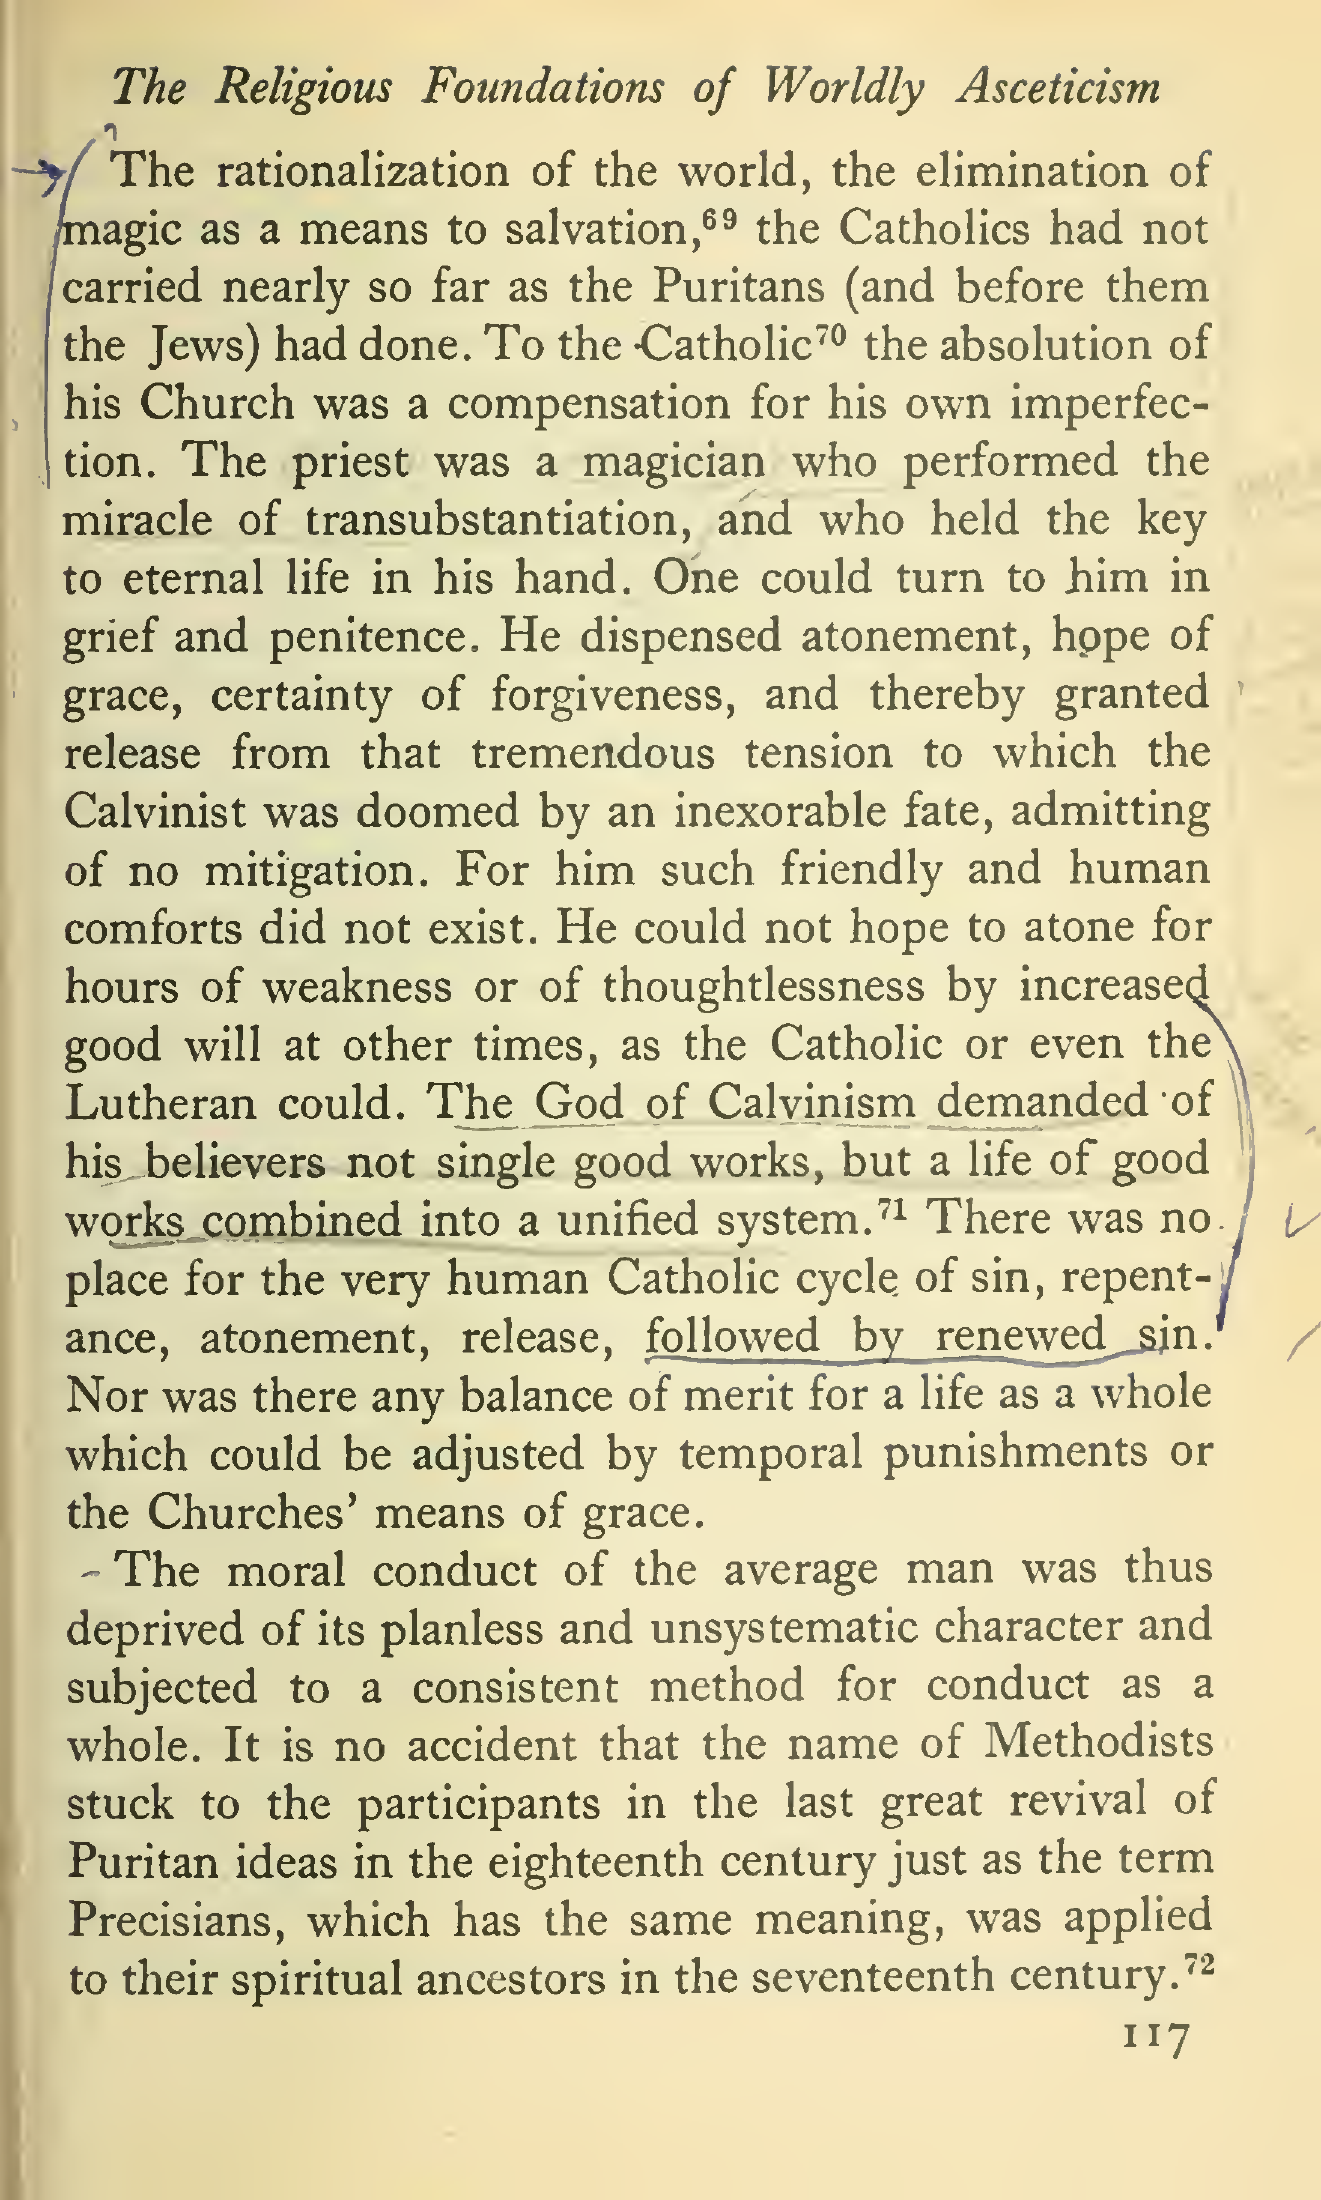 The Religious Foundations of Worldly Asceticism
The rationalization of the world, the elimination of
magic as a means to salvation,⁶⁹ the Catholics had not
carried nearly so far as the Puritans (and before them
the Jews) had done. To the Catholic⁷⁰ the absolution of
his Church was a compensation for his own imperfec-
tion. The priest was a magician who performed the
miracle of transubstantiation, and who held the key
to eternal life in his hand. One could turn to him in
grief and penitence. He dispensed atonement, hope of
grace, certainty of forgiveness, and thereby granted
release from that tremendous tension to which the
Calvinist was doomed by an inexorable fate, admitting
of no mitigation. For him such friendly and human
comforts did not exist. He could not hope to atone for
hours of weakness or of thoughtlessness by increased
good will at other times, as the Catholic or even the
Lutheran could. The God of Calvinism demanded of
his believers not single good works, but a life of good
works combined into a unified system.⁷¹ There was no
place for the very human Catholic cycle of sin, repent-
ance, atonement, release, followed by renewed sin.
Nor was there any balance of merit for a life as a whole
which could be adjusted by temporal punishments or
the Churches’ means of grace.
The moral conduct of the average man was thus
deprived of its planless and unsystematic character and
subjected to a consistent method for conduct as a
whole. It is no accident that the name of Methodists
stuck to the participants in the last great revival of
Puritan ideas in the eighteenth century just as the term
Precisians, which has the same meaning, was applied
to their spiritual ancestors in the seventeenth century.⁷²
117